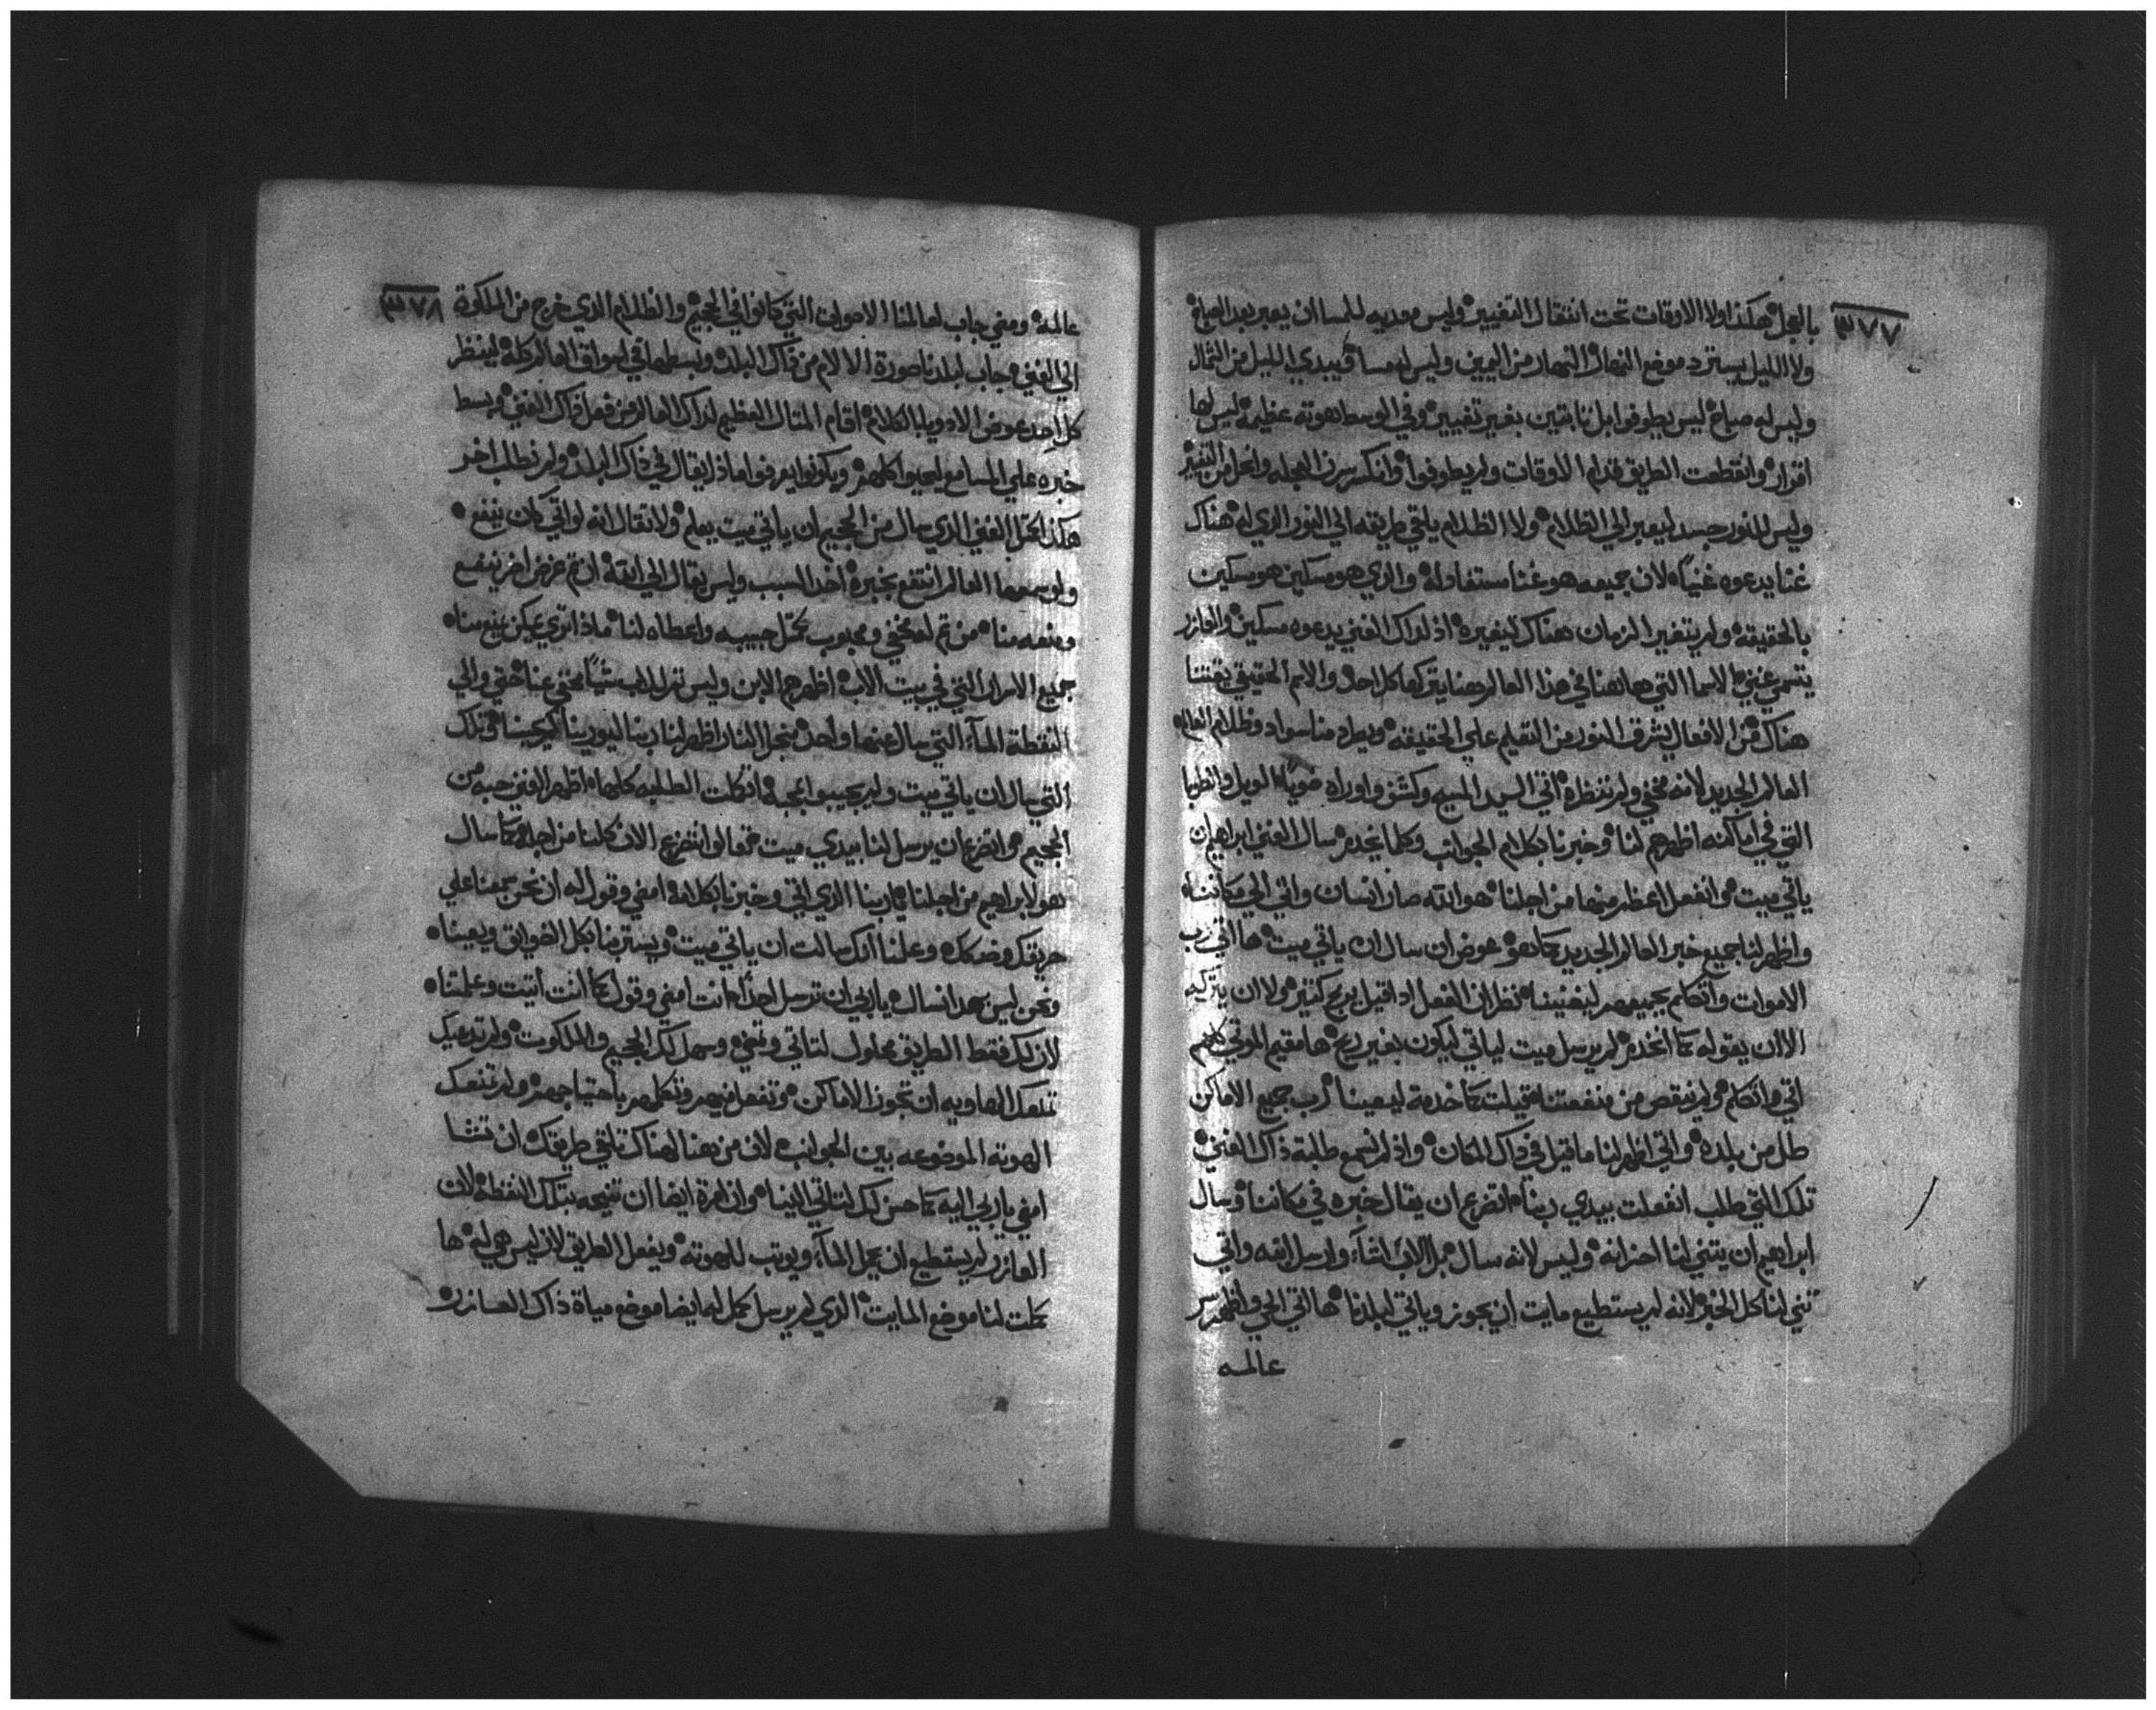 ٣٧٧
بالعجل هكذا ولا الاوقات تحت انتقال التغيير وليس موديه للمسا ان يعبر بعد الصباح
ولا الليل يسترد موضع النهار النهار من اليمين وليس له مسا يبدي الليل من الشمال
وليس له صباح ليس يطوفوا بل ثابتين بغير تغيير وفي الوسط هوته عظيمة ليس لها
اقرار وانقطعت الطريق قدام الاوقات ولم يطوفوا وانكسرت العجله وانحل من التغيير
وليس للنور جسد ليعبر الي الظلام ولا الظلام يلقي طريقه الي النور الذي له هناك
غنا يدعوه غنياً لان جميعه هو غنا مستفادله والذي هو مسكين هو مسكين
بالحقيقة ولم يتغير الزمان هناك ليغيره اذ لذاك الغني يدعوه مسكين والعازر
يتسمي غني الاسما التي هاهنا في هذا العالم هنا يتركها كل احد والاسم الحقيقي يقتنا
هناك من الافعال يشرق النور من التعليم علي الحقيقه ويطرد منا سواد وظلام العالم
العالم الجديد لانه مخفي ولم ننظره اتي السيد المسيح وكشف واوراه ضوياً الويل والطوبا
التي في اماكنه اظهرهم لنا وخبرنا بكلام الجوانب وكلما يخدم سال الغني ابراهيم ان
ياتي ميت وانفعل اعظم منها من اجلنا هو الله صار انسان واتي الي مكاننا
واظهر لنا جميع خبر العالم الجديد كما هو عوض ان سال ان ياتي ميت ها اتي رب
الاموات واتكلم بجميعهم ليغنينا نظر ان الفعل اذا قيل يربح كثير ولا ان يتركه
الا ان يقوله كما انخدم لم يرسل ميت لياتي ليكون بغير ربح ها مقيم الموتي كلهم
اتي واتكلم ولم ينقص من منفعتنا قيلت كما خدمة ليعيننا رب جميع الاماكن
طل من بلده واتي اظهر لنا ما قيل في ذاك المكان واذ لم نسمع طلبة ذاك الغني
تلك التي طلب انفعلت بيدي ربنا اتضرع ان يقال خبره في مكاننا وسال
ابراهيم ان يثني لنا احزانه وليس لانه سال بل الاب اشآء وارسل ابنه واتي
ثني لنا كل الخبر لانه لم يستطيع مايت ان يجوز وياتي لبلدنا ها اتي الحي واظهر سر
عالمه
٣٧٨
عالمه ومضي جاب لعالمنا الاصوات التي كانوا في الجحيم والظلام الذي خرج من الملكوة
الي الغني جاب لبلدنا صورة الالام من ذاك البلد وبسطها في اسواق العالم كله لينظر
كل احد عوض الادويا بالكلام اقام المثال العظيم لذاك العالم من فعل ذاك الغني وبسط
خبره علي المسامع ليحيوا كلهم ويكونوا يعرفوا ماذا يقال في ذاك البلد ولم نطلب اخر
هكذا كمثل الغني الذي سال من الجحيم ان ياتي ميت يعلم ولا نقال انه لو اتي كان ينفع
ولو سمعها العالم انتفع بخبره اخد السبب وليس يقال الي ابنه ان ثم غرض اخر ينفع
ومنعه منا من ثم له مخفي ومحبوب كمثل حبيبه واعطاه لنا ماذا تري يمكن يمنع منا
جميع الاسرار التي في بيت الاب اظهرهم الابن وليس ترك للاب شيئاً مخفي عنا حتي والي
النقطة المآء التي سال عنها واحد من اجل النار اظهر لنا ربنا ليورينا كم يحبنا وتلك
التي سال ان ياتي ميت ولم يجيبوا محبه اتكلت الطلبه كلها اظهر الغني حبه من
الجحيم واتضرع ان يرسل لنا بيدي ميت فتعالوا نتضرع الان كلنا من اجله كما سال
هو لابراهيم من اجلنا يا ربنا الذي اتي وخبرنا بكلامه امضي وقول له ان نحن سمعنا علي
حريقك وضنكك وعلمنا انك سالت ان ياتي ميت ويستر منا بكل الضوايق ويعينا
ونحن ليس هذا نسال يا ربي ان ترسل احداً انت امضي وقول كما انت أتيت وعلمتنا
لان لك فقط الطريق محلول لتاتي وتمضي وسهل لك الجحيم والملكوت ولم تدعيك
تمنعك الهاويه ان تجوز الاماكن وتفعل فيهم وتكلهم باحتياجهم ولم تمنعك
الهوته الموضوعه بين الجوانب لان من هنا لهناك تلقي طريقك ان تشا
امضي يا ربي اليه كما حسن لك لتاتي الينا وان امرة ايضا ان تنيحه بتلك النقطه لان
العازر لم يستطيع ان يحمل المآء ويوتب للهوته ويفعل الطريق لان ليس هي له ها
كملت لنا موضع المايت الذي لم يرسل كمل له ايضا موضع مياة ذاك العازر